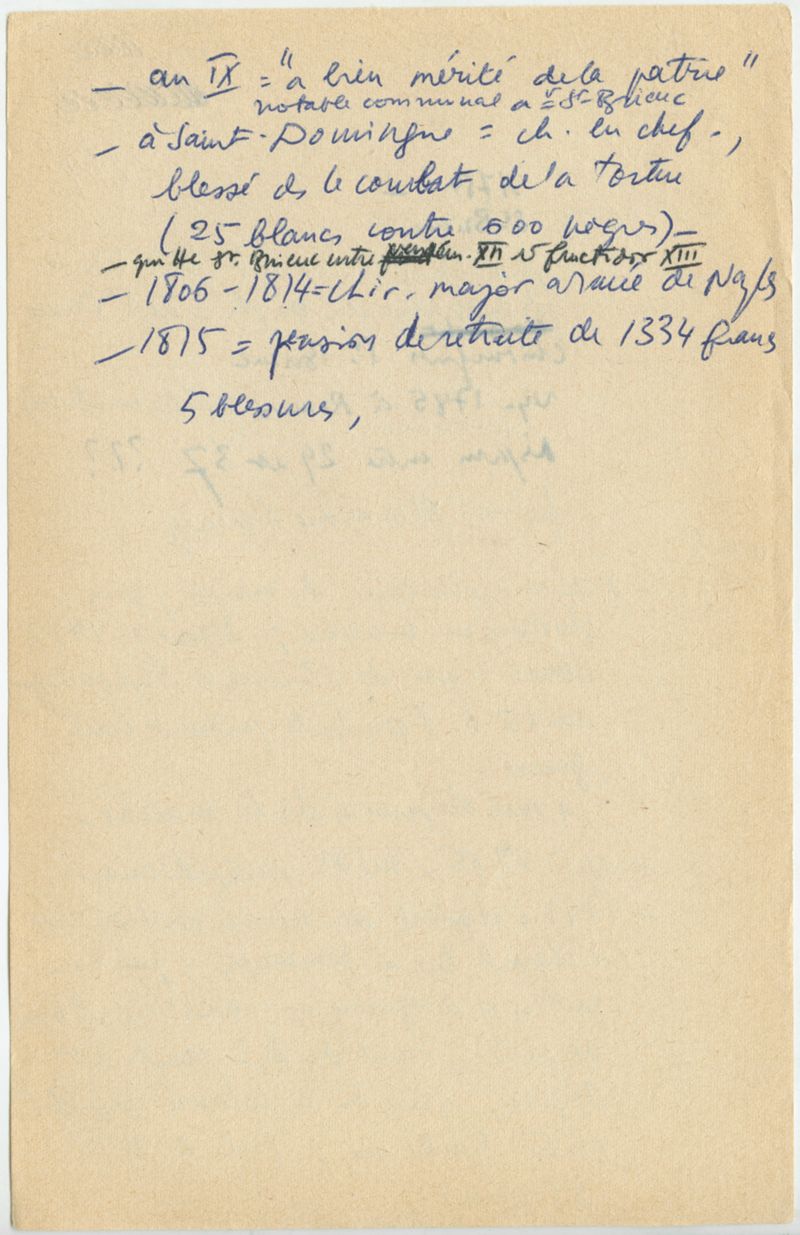 — an IX = "a bien mérité de la patrie"
notable communal à St-Brieuc
— à Saint-Domingue = ch. en chef -,
blessé ds le combat de la Tortue
(25 blancs contre 600 nègres) -
— quitte St. Brieuc entre XII et fructidor XIII
— 1806 - 1814 = chir. major armée de Naples
— 1815 = pension de retraite de 1334 francs
5 blessures,